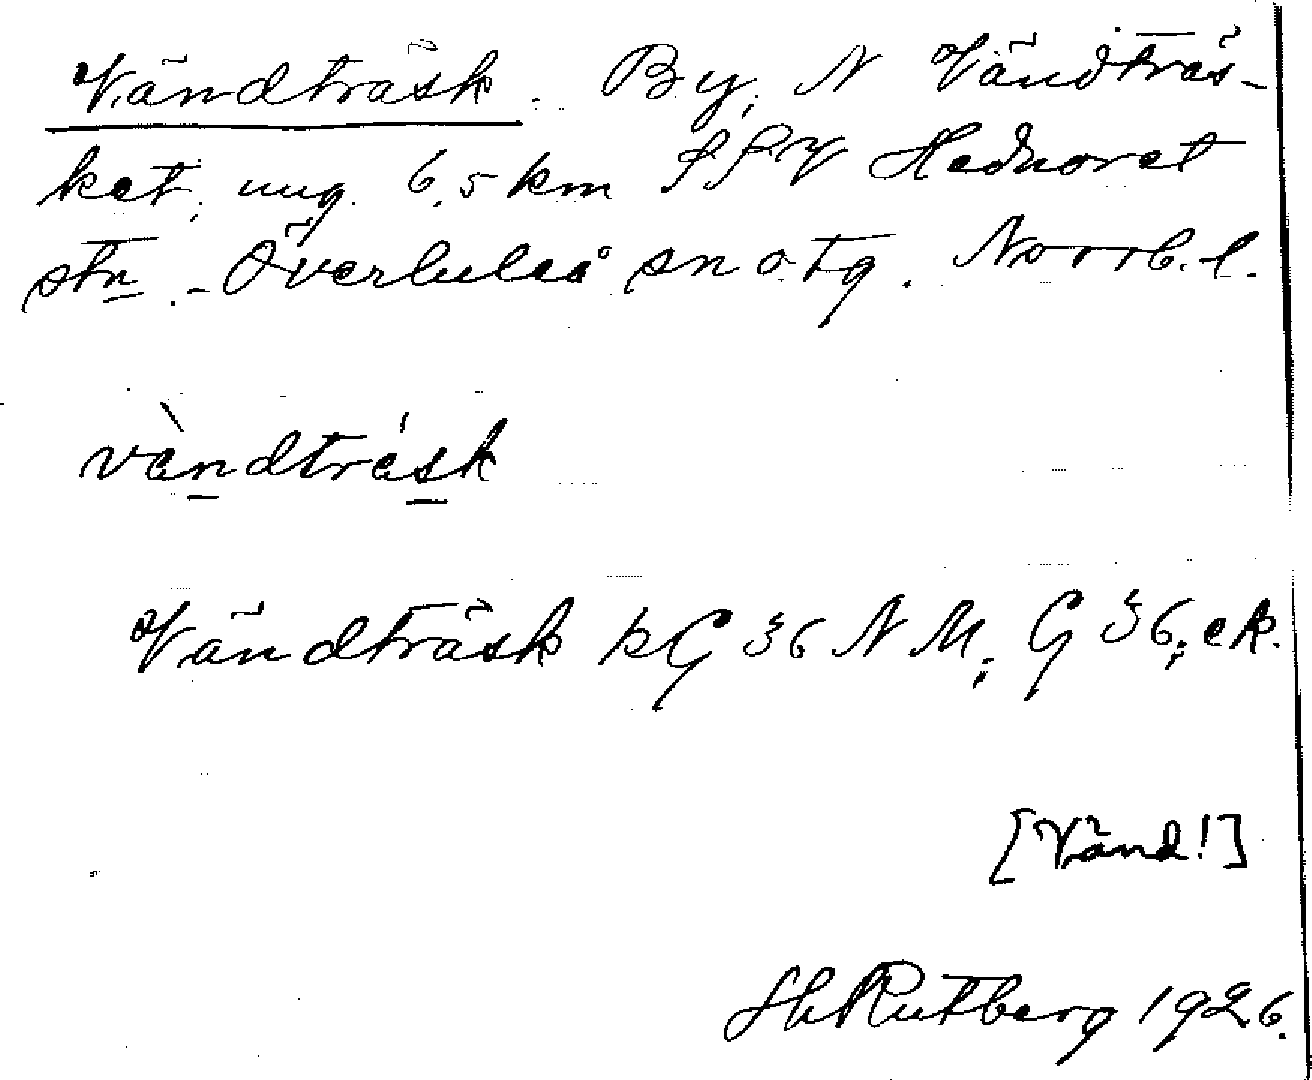 Vändträsk. By, N Vändträs-
ket, ung. 6,5 km SSV Hednoret
stn. - Överluleå sn o tg. Norrb. l.
vàndtrásk
Vändträsk kG 36 N M; G 36; ek.
[Vänd!]
Rutberg 1926.